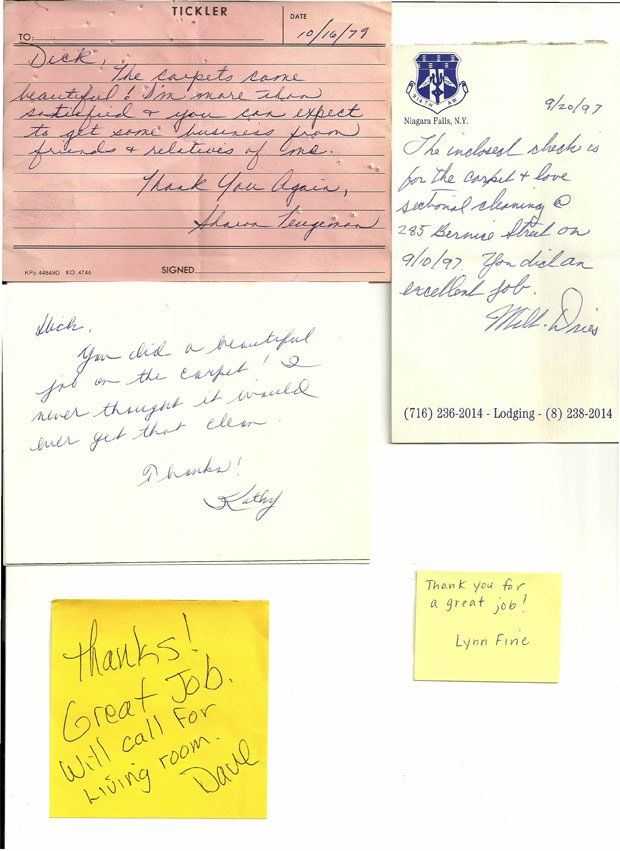 TICKLER
DATE
TO: 10/16/79
Dick,
The carpets came
beautiful! I'm more than
satisfied & you can expect
to get some business from
friends & relatives of me.
Thank You Again,
Sharon
KPo 44849D KO 4746 SIGNED
914TH AW
Niagara Falls, N.Y.
9/20/97
The inclosed check is
for the carpet & love
sectional cleaning @
285 Bernice Street on
9/10/97. You did an
excellent job.
Milt. Dries
(716) 236-2014 - Lodging - (8) 238-2014
Dick,
You did a beautiful
job on the carpet! I
never thought it would
ever get that clean.
Thanks!
Kathy
Thank you for
a great job!
Lynn Fine
Thanks!
Great Job.
Will call For
Living room.
Dave